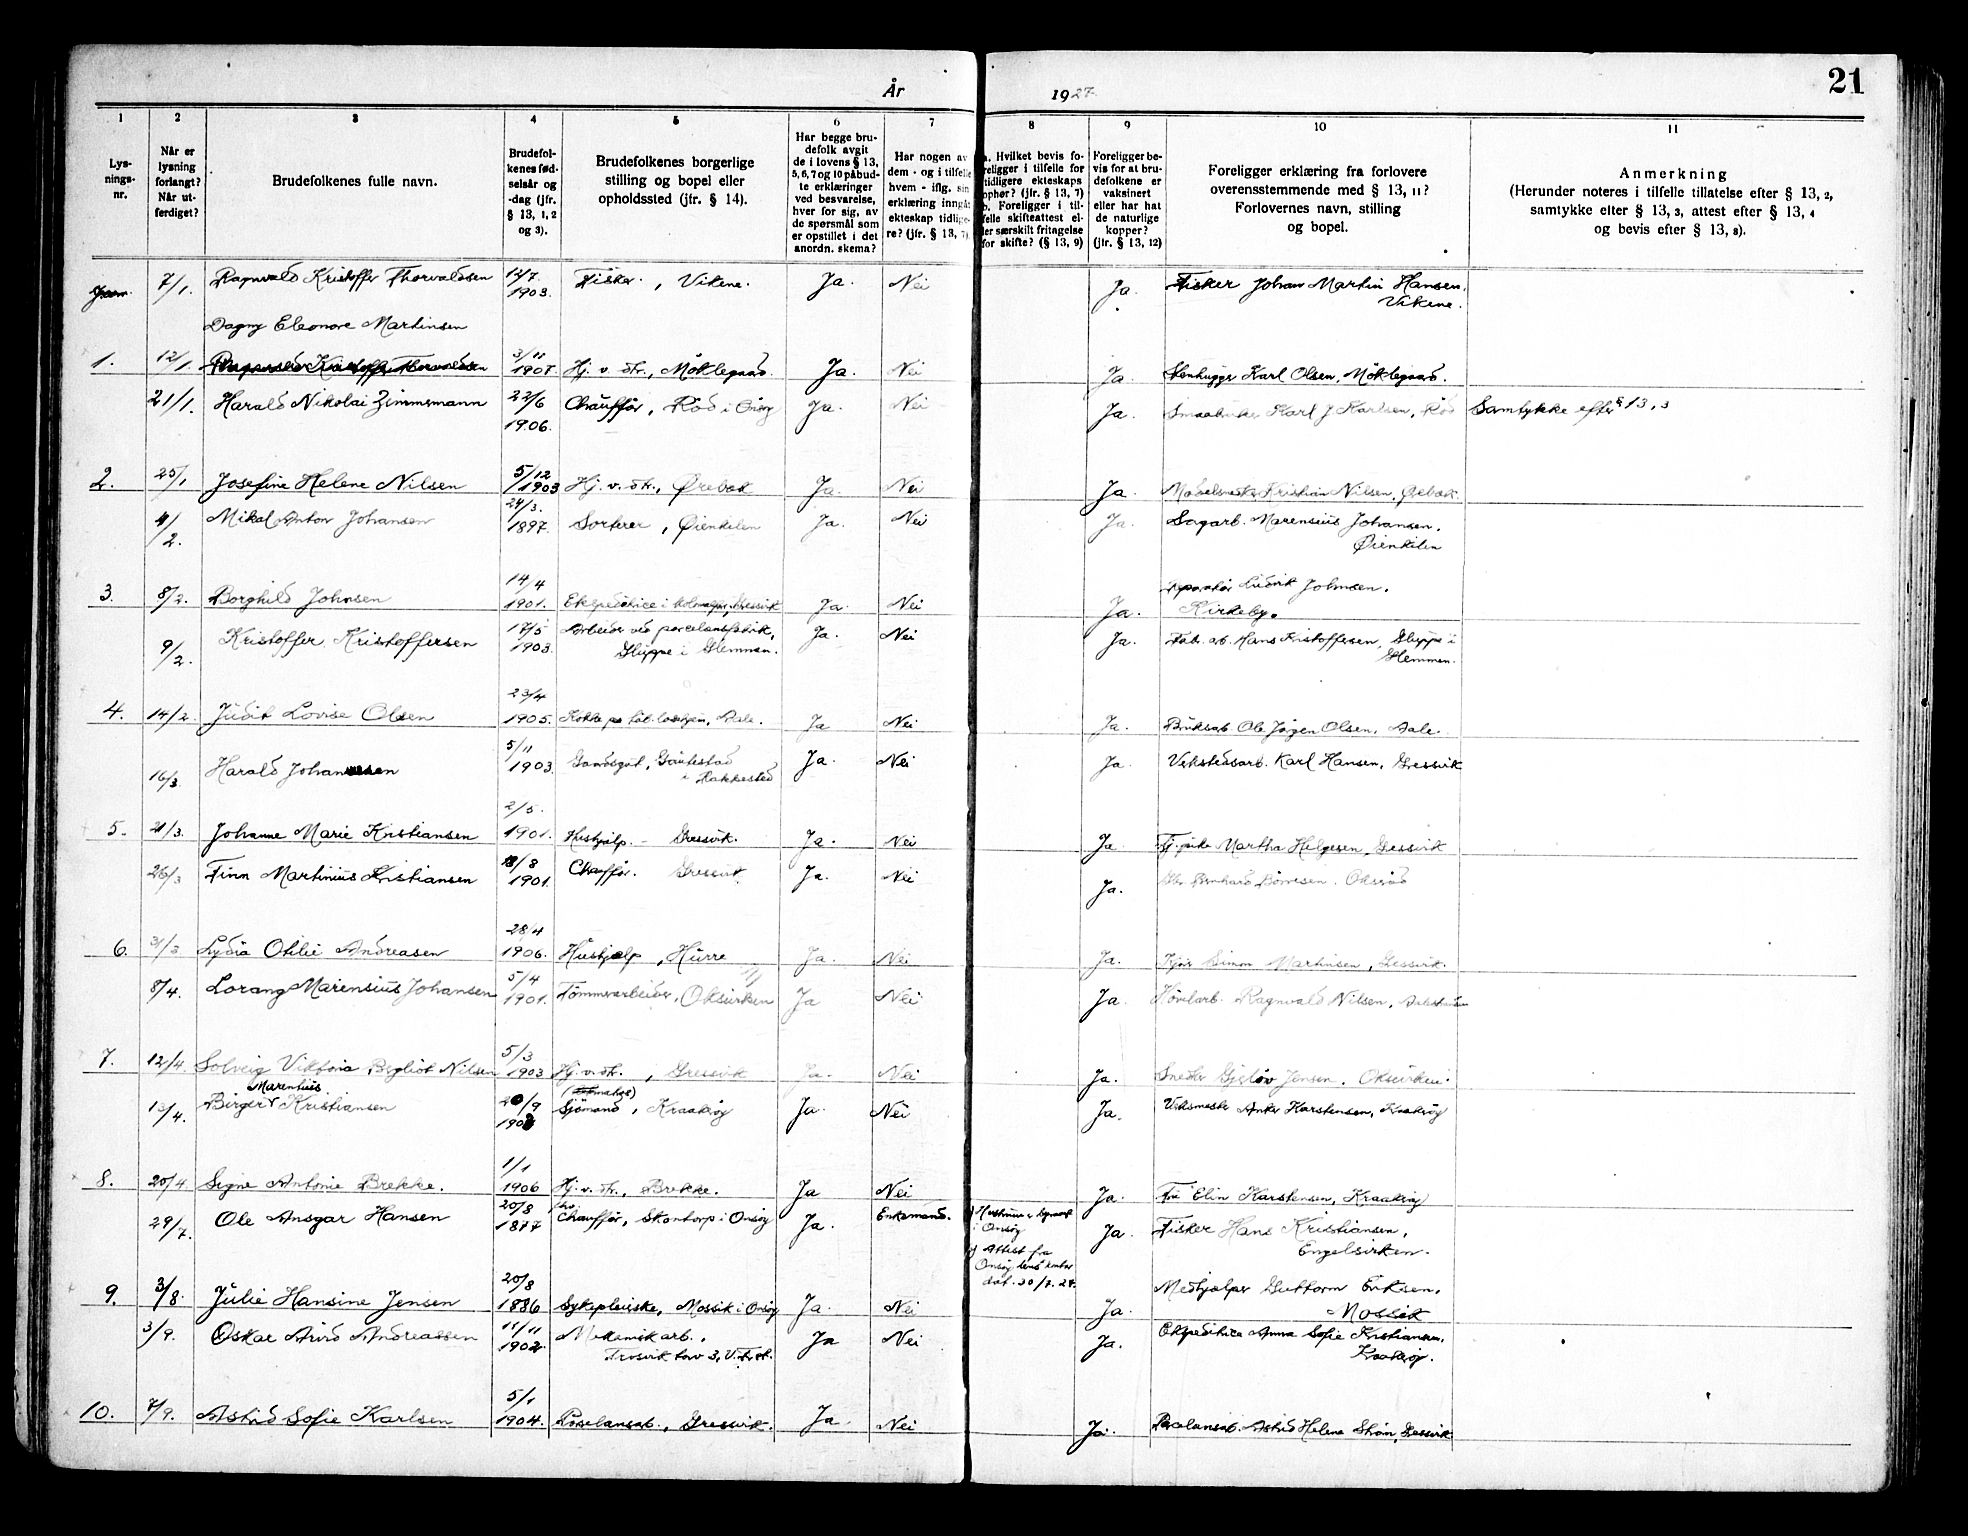 År
1927.
21
1
2
3
4
5
6
7
8
9
10
11
Lys-
nings-
nr.
Når er
lysning
forlangt?
Når ut-
ferdiget?
Brudefolkenes fulle navn.
Brudefol-
kenes fød-
selsår og
-dag (jfr.
§ 13, 1, 2
og 3).
Brudefolkenes borgerlige
stilling og bopel eller
opholdssted (jfr. § 14).
Har begge bru-
defolk avgit
de i lovens § 13,
5, 6, 7 og 10 påbud-
te erklæringer
ved besvarelse,
hver for sig, av
de spørsmål som
er opstillet i det
anordn. skema?
Har nogen av
dem - og i tilfelle
hvem - iflg. sin
erklæring inngåt
ekteskap tidlige-
re? (jfr. § 13, 7)
a. Hvilket bevis fo-
religger i tilfelle for
tidligere ekteskaps
ophør? (jfr. § 13, 7)
b. Foreligger i til-
felle skifteattest el-
ler særskilt fritagelse
for skifte? (§ 13, 9)
Foreligger be-
vis for at bru-
defolkene er
vaksinert
eller har hat
de naturlige
kopper?
(jfr. § 13, 12)
Foreligger erklæring fra forlovere
overensstemmende med § 13, 11?
Forlovernes navn, stilling
og bopel.
Anmerkning
(Herunder noteres i tilfelle tillatelse efter § 13, 2,
samtykke efter § 13, 3, attest efter § 13, 4
og bevis efter § 13, 8).
7/1. Ragnvald Kristoffer Thorvaldsen 14/7 1903. Fisker, Vikene. Ja. Nei Ja. Fisker Johan Martin Hansen,
Vikene.
Dagny Eleonore Martinsen
1. 12/1. 3/11 1907. Hj. v. str., Möklegaard. Ja. Nei Ja. Stenhugger Karl Olsen, Möklegaard.
21/1. Harald Nikolai Zimmermann 22/6 1906. Chauffør, Röd i Onsöy Ja. Nei Ja. Smaabruker Karl J Karlsen, Röd Samtykke efter § 13, 3
2. 25/1 Josefine Helene Nilsen 5/12 1903 Hj. v. str., Ørebæk Ja. Nei Ja. Kristian Nilsen, Ørebæk.
4/2. Mikal Anton Johansen 24/3. 1897. Sorterer, Øienkilen Ja. Nei Ja. Sagarb. Marensius Johansen,
Øienkilen
3. 8/2. Borghild Johnsen 14/4 1901. Ekspeditrice i Gressvik Ja. Nei Ja. Ludvik Johnsen.
Kirkeby.
9/2. Kristoffer Kristoffersen 17/5 1903. Arbeider ved porcelansfabrik, Ja. Nei Ja. Fab. arb. Hans Kristoffersen, Gluppe i
Gluppe i Glemmen. Glemmen.
4. 14/2. Judit Lovise Olsen 23/4 1905. Kokke Aale. Ja Nei Ja. Bruksarb Ole Jörgen Olsen, Aale.
16/3. Harald Johannesen 5/11 1903. Gaardsgut, Gautestad Ja. Nei Ja. Verkstedsarb. Karl Hansen, Gressvik
i Rakkestad
5. 21/3. Johanne Marie Kristiansen 2/5. 1901. Hushjælp. - Gressvik. Ja. Nei Ja. Tj. pike Martha Helgesen, Gressvik
26/3 Finn Martinius Kristiansen 8/8 1901. Chauffør. Gressvik. Ja. Nei Ja. Bernhard Börresen. Oksröd
6. 31/3 Lydia Otilie Andreasen 28/4 1906. Hushjælp, Hurre Ja. Nei Ja. Simon Martinsen, Gressvik.
8/4. Lorang Marensius Johansen 5/4 1901. Tömmerarbeider, Oksviken Ja Nei Ja. Hövlarb. Ragnvald Nilsen,
7. 12/4. Solveig Viktoria Bergliot Nilsen 5/3 1903 Hj. v. str., Gressvik Ja. Nei Ja. Snekker Gjerlöv Jensen. Oksviken.
Marentius
13/4. Birger Kristiansen 20/9 Sjömand, Kraakröy Ja. Nei Ja. Verksmester Anker Karstensen, Kraakröy
8. 20/4. Signe Antonie Brekke. 1/1 1906 Hj. v. str., Brekke. Ja Nei Ja. Fru Elin Karstensen, Kraakröy
29/7. Ole Ansgar Hansen 20/8 1877 Chauffør, Skontorp i Onsöy Ja. Enkemand. Ja. Fisker Hans Kristiansen,
Engelsviken.
i Onsöy
b) Attest fra
Onsöy lensmann
dat. 30/7. 27.
9. 3/8. Julie Hansine Jensen 20/8 1886 Sykepleierske, Mossik i Onsöy Ja. Nei Ja. Medhjelper Guttorm Eriksen,
Mossik
3/9. Oskar Arvid Andreassen 11/11 1902. Mekanisk arb., Ja Nei Ja. Ekspeditrice Anna Sofie Kristiansen,
Trosvik torv 3, V. Fr.st. Kraakröy.
10. 7/9. Astrid Sofie Karlsen 5/1 1904. Porselansarb., Gressvik. Ja. Nei Ja. Porcelansarb. Astrid Helene Ström, Gressvik